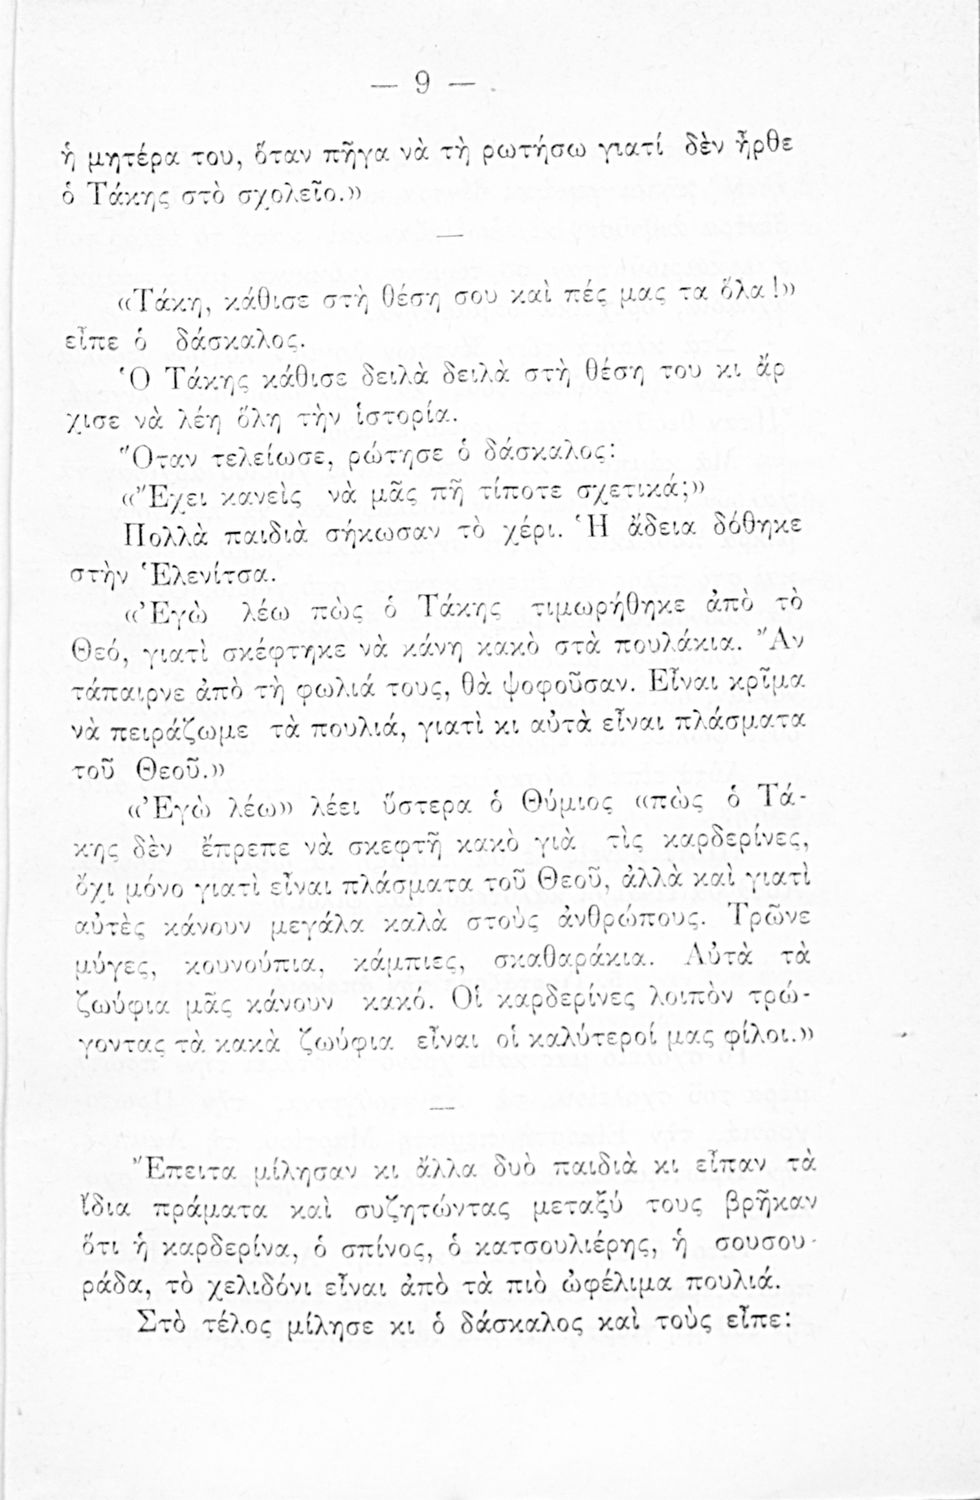 — 9 —
ἡ μητέρα του, ὅταν πῆγα νὰ τὴ ρωτήσω γιατί δὲν ἦρθε
ὁ Τάκης στὸ σχολεῖο.»
—
«Τάκη, κάθισε στὴ θέση σου καὶ πές μας τα ὅλα!»
εἶπε ὁ δάσκαλος.
Ὁ Τάκης κάθισε δειλὰ δειλὰ στὴ θέση του κι ἄρ
χισε νὰ λέη ὅλη τὴν ἱστορία.
Ὅταν τελείωσε, ρώτησε ὁ δάσκαλος:
«Ἔχει κανεὶς νὰ μᾶς πῆ τίποτε σχετικά;»
Πολλὰ παιδιὰ σήκωσαν τὸ χέρι. Ἡ ἄδεια δόθηκε
στὴν Ἑλενίτσα.
«Ἐγὼ λέω πὼς ὁ Τάκης τιμωρήθηκε ἀπὸ τὸ
Θεό, γιατὶ σκέφτηκε νὰ κάνη κακὸ στὰ πουλάκια. Ἂν
τάπαιρνε ἀπὸ τὴ φωλιά τους, θὰ ψοφοῦσαν. Εἶναι κρῖμα
νὰ πειράζωμε τὰ πουλιά, γιατὶ κι αὐτὰ εἶναι πλάσματα
τοῦ Θεοῦ.»
«Ἐγὼ λέω» λέει ὕστερα ὁ Θύμιος «πὼς ὁ Τά-
κης δὲν ἔπρεπε νὰ σκεφτῆ κακὸ γιὰ τὶς καρδερίνες,
ὄχι μόνο γιατὶ εἶναι πλάσματα τοῦ Θεοῦ, ἀλλὰ καὶ γιατὶ
αὐτὲς κάνουν μεγάλα καλὰ στοὺς ἀνθρώπους. Τρῶνε
μύγες, κουνούπια, κάμπιες, σκαθαράκια. Αὐτὰ τὰ
ζωύφια μᾶς κάνουν κακό. Οἱ καρδερίνες λοιπὸν τρώ-
γοντας τὰ κακὰ ζωύφια εἶναι οἱ καλύτεροί μας φίλοι.»
—
Ἔπειτα μίλησαν κι ἄλλα δυὸ παιδιὰ κι εἶπαν τὰ
ἴδια πράματα καὶ συζητώντας μεταξύ τους βρῆκαν
ὅτι ἡ καρδερίνα, ὁ σπίνος, ὁ κατσουλιέρης, ἡ σουσου-
ράδα, τὸ χελιδόνι εἶναι ἀπὸ τὰ πιὸ ὠφέλιμα πουλιά.
Στὸ τέλος μίλησε κι ὁ δάσκαλος καὶ τοὺς εἶπε: